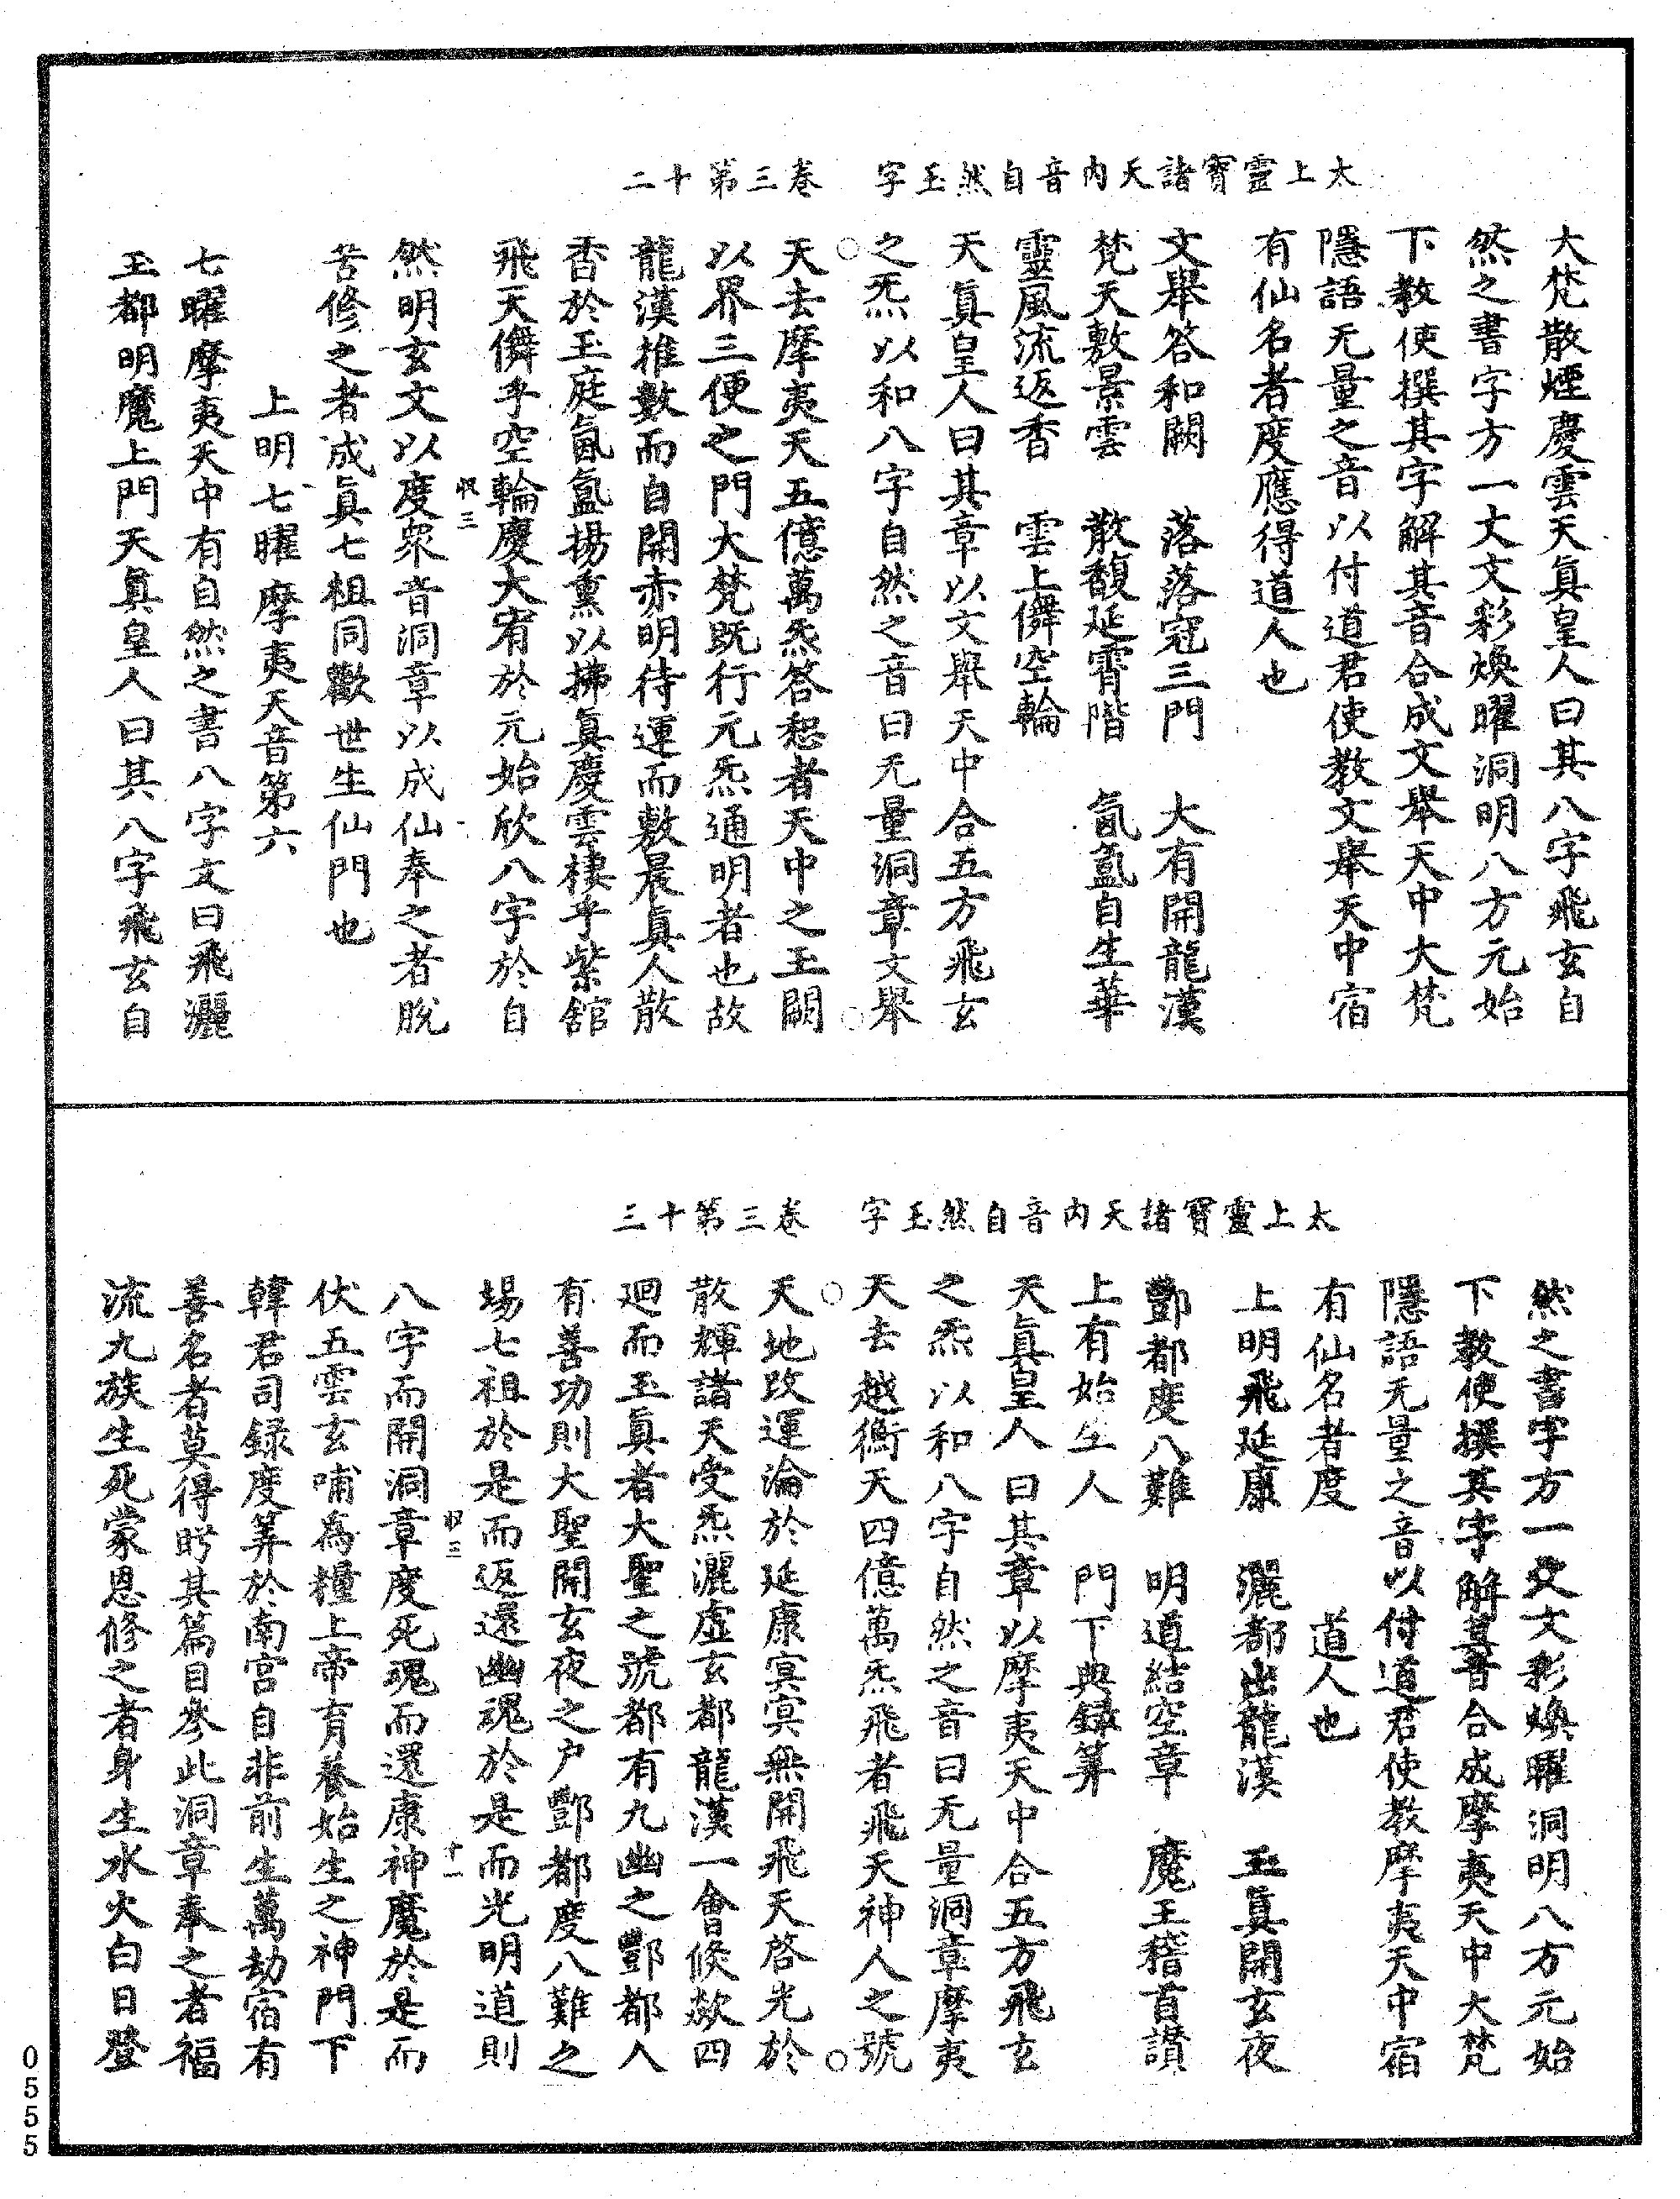 太上靈寶諸天內音自然玉字　卷三第十二
大梵散煙慶雲天真皇人曰其八字飛玄自
然之書字方一丈文彩煥曜洞明八方元始
下教使撰其字解其音合成文舉天中大梵
隱語无量之音以付道君使教文舉天中宿
有仙名者度應得道人也
文舉答和闕　落落冠三門　大有開龍漢
梵天敷景雲　散馥延霄階　氤氳自生華
靈風流返香　雲上儛空輪
天真皇人曰其章以文舉天中合五方飛玄
之炁以和八字自然之音曰无量洞章文舉
天去摩夷天五億萬炁答恕者天中之玉闕
以界三便之門大梵既行元炁通明者也故
龍漢推數而自開赤明待運而敷晨真人散
香於玉庭氤氳揚熏以拂真慶雲棲乎紫舘
飛天儛乎空輪慶大宥於元始欣八字於自
然明玄文以度衆音洞章以成仙奉之者脫
苦修之者成真七祖同歡世生仙門也
上明七曜摩夷天音第六
七曜摩夷天中有自然之書八字文曰飛灑
玉都明魔上門天真皇人曰其八字飛玄自
太上靈寶諸天內音自然玉字　卷三第十三
然之書字方一丈文彩煥曜洞明八方元始
下教使撰其字解其音合成摩夷天中大梵
隱語无量之音以付道君使教摩夷天中宿
有仙名者度　　道人也
上明飛延康　灑都出龍漢　玉真開玄夜
酆都度八難　明道結空章　魔王稽首讚
上有始生人　門下典錄筭
天真皇人曰其章以摩夷天中合五方飛玄
之炁以和八字自然之音曰无量洞章摩夷
天去越衡天四億萬炁飛者飛天神人之號
天地改運淪於延康冥冥無開飛天啓光於
散輝諸天受炁灑虛玄都龍漢一會倏欻四
迴而玉真者大聖之號都有九幽之酆都人
有善功則大聖開玄夜之户酆都度八難之
場七祖於是而返還幽魂於是而光明道則
八字而開洞章度死魂而還康神魔於是而
伏五雲玄哺為糧上帝育養始生之神門下
韓君司録度筭於南宫自非前生萬劫宿有
善名者莫得眄其篇目參此洞章奉之者福
流九族生死蒙恩修之者身生水火白日登
0555